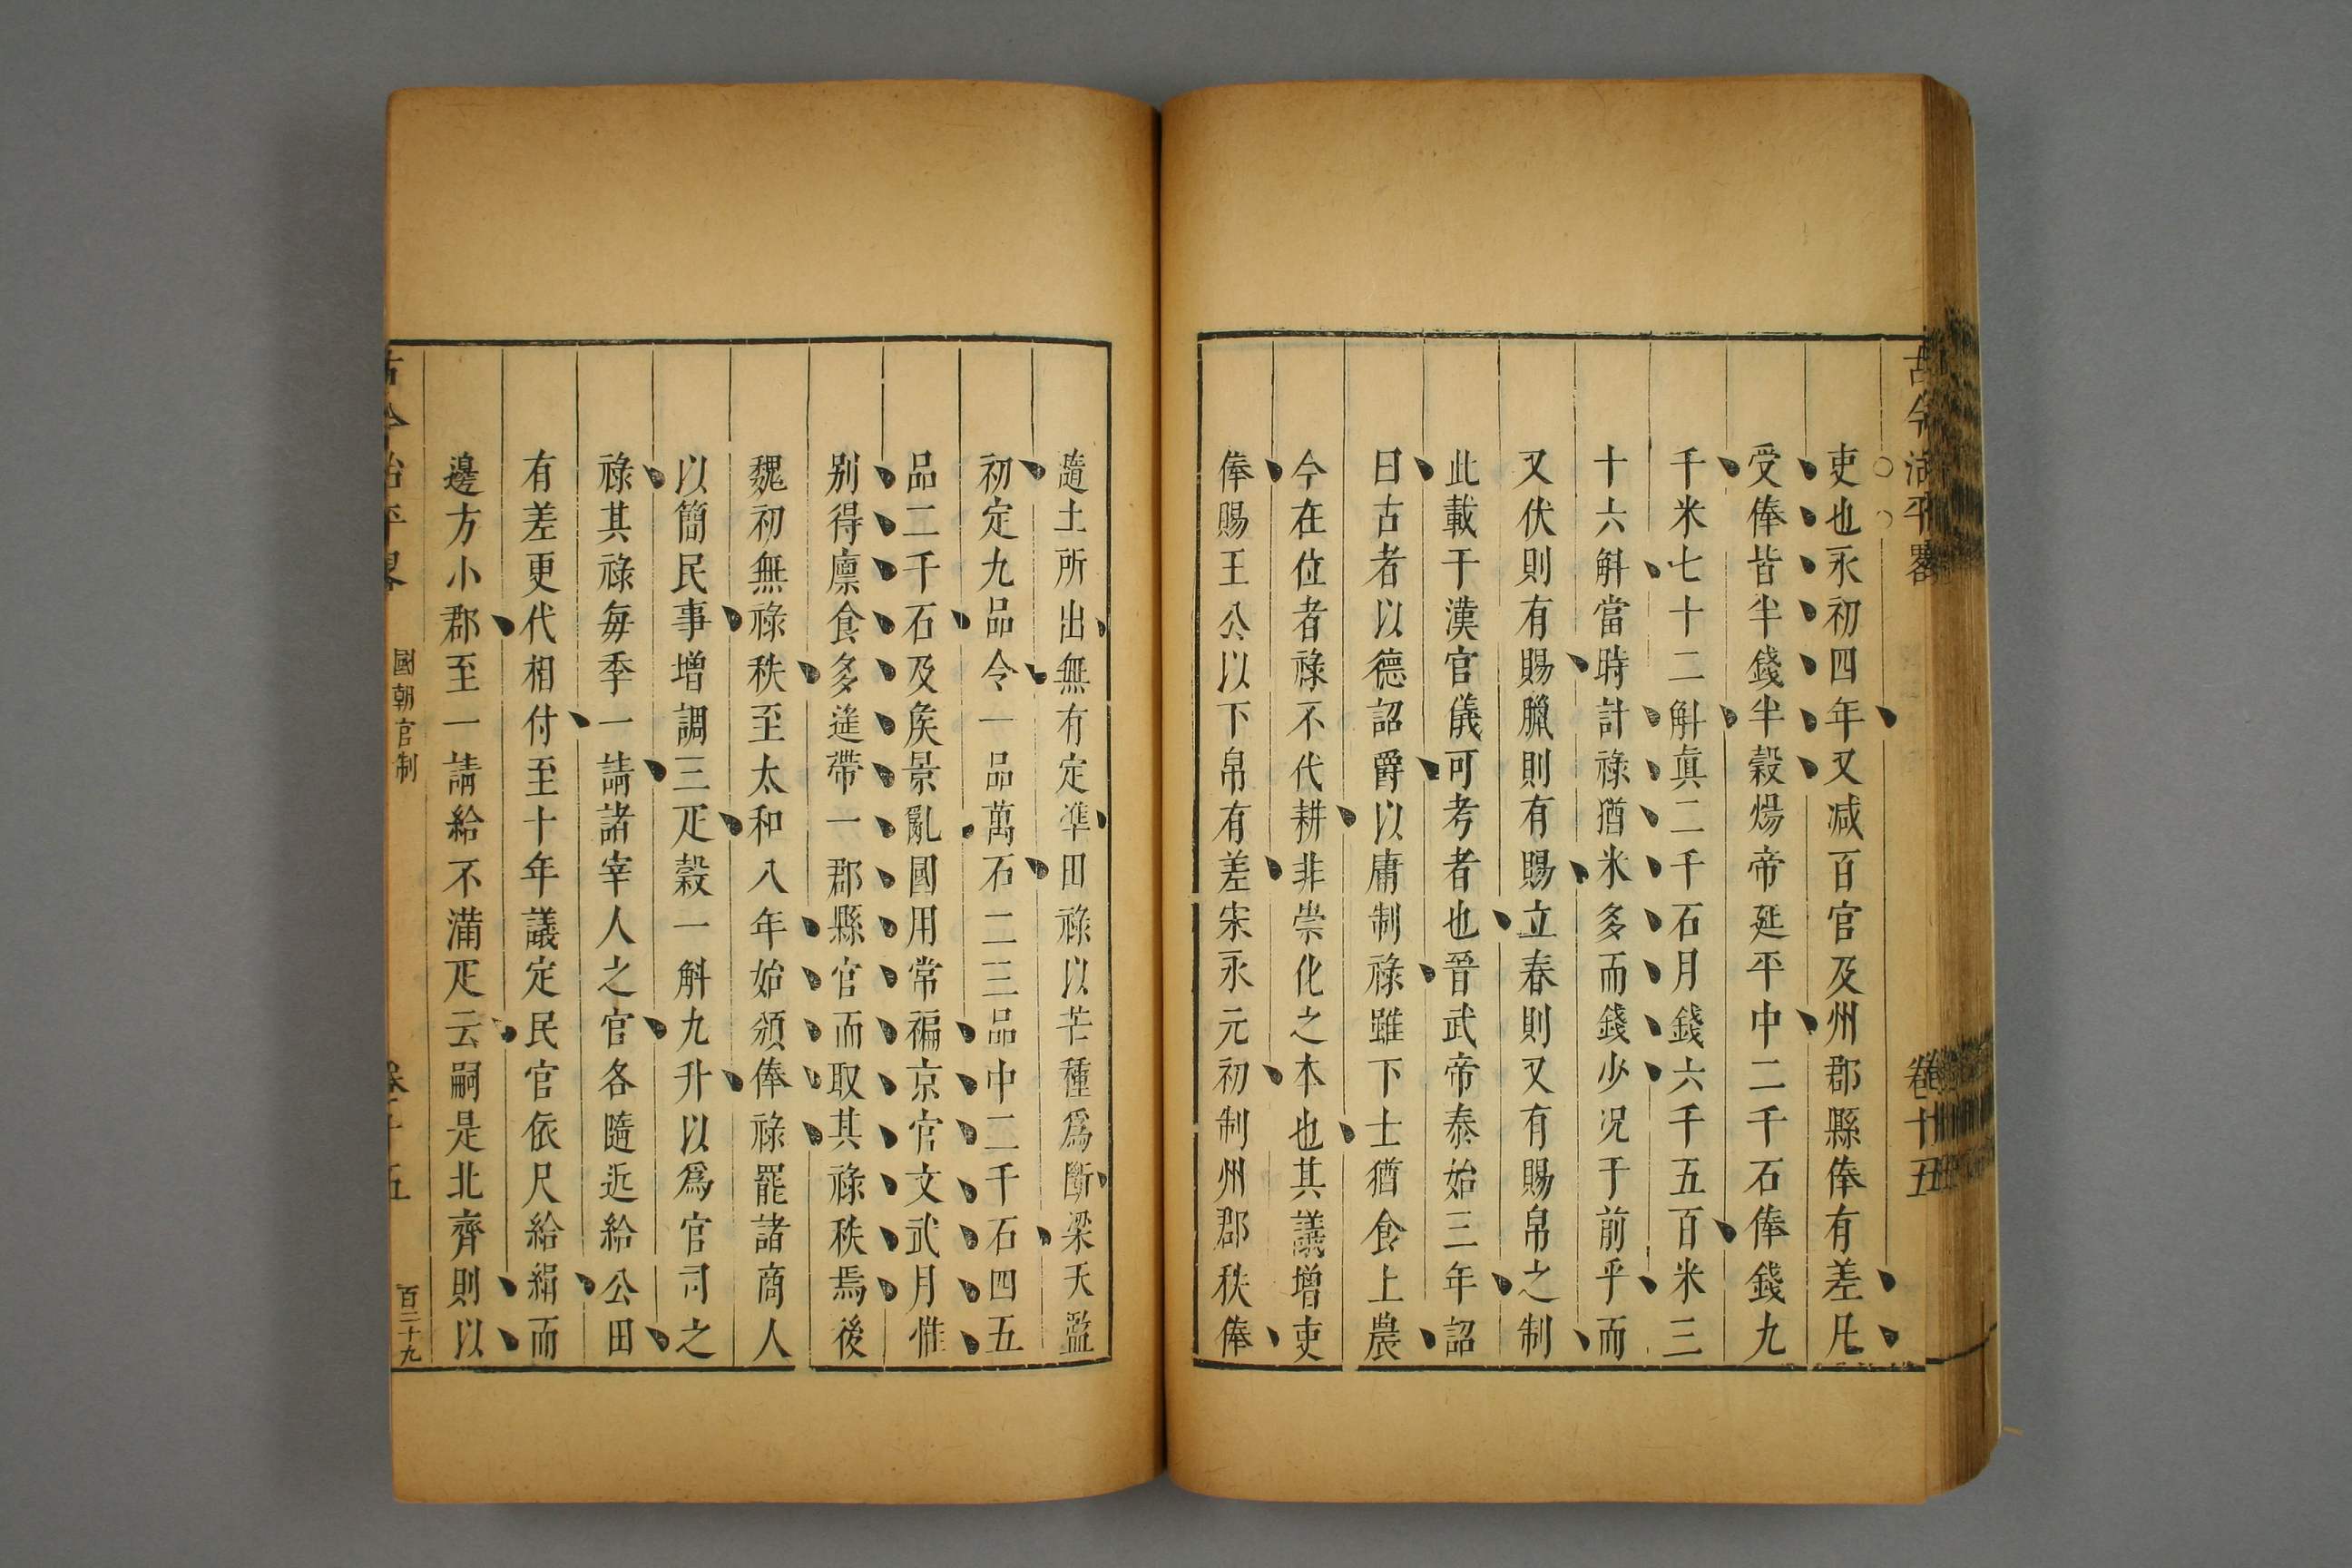 古今治平畧
卷十五
吏也永初四年又減百官及州郡縣俸有差凡
受俸皆半錢半穀煬帝延平中二千石俸錢九
千米七十二斛真二千石月錢六千五百米三
十六斛當時計祿猶米多而錢少况于前乎而
又伏則有賜臘則有賜立春則又有賜帛之制
此載于漢官儀可考者也晉武帝泰始三年詔
曰古者以德詔爵以庸制祿雖下士猶食上農
今在位者祿不代耕非崇化之本也其議增吏
俸賜王公以下帛有差宋永元初制州郡秩俸
隨土所出無有定準田祿以芒種爲斷梁天監
初定九品令一品萬石二三品中二千石四五
品二千石及矦景亂國用常褊京官文武月惟
别得廩食多遥帶一郡縣官而取其祿秩焉後
魏初無祿秩至太和八年始頒俸祿罷諸商人
以簡民事增調三疋穀一斛九升以爲官司之
祿其祿每季一請諸宰人之官各隨近給公田
有差更代相付至十年議定民官依尺給絹而
邊方小郡至一請給不滿疋云嗣是北齊則以
古今治平畧
國朝官制
卷十五
百二十九